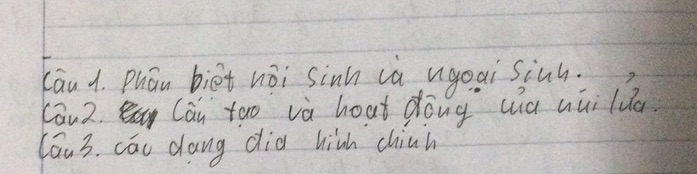 Câu 1. Phân biệt nội sinh và ngoại sinh.
Câu 2. Cấu tạo và hoạt động của núi lửa.
Câu 3. các dạng địa hình chính